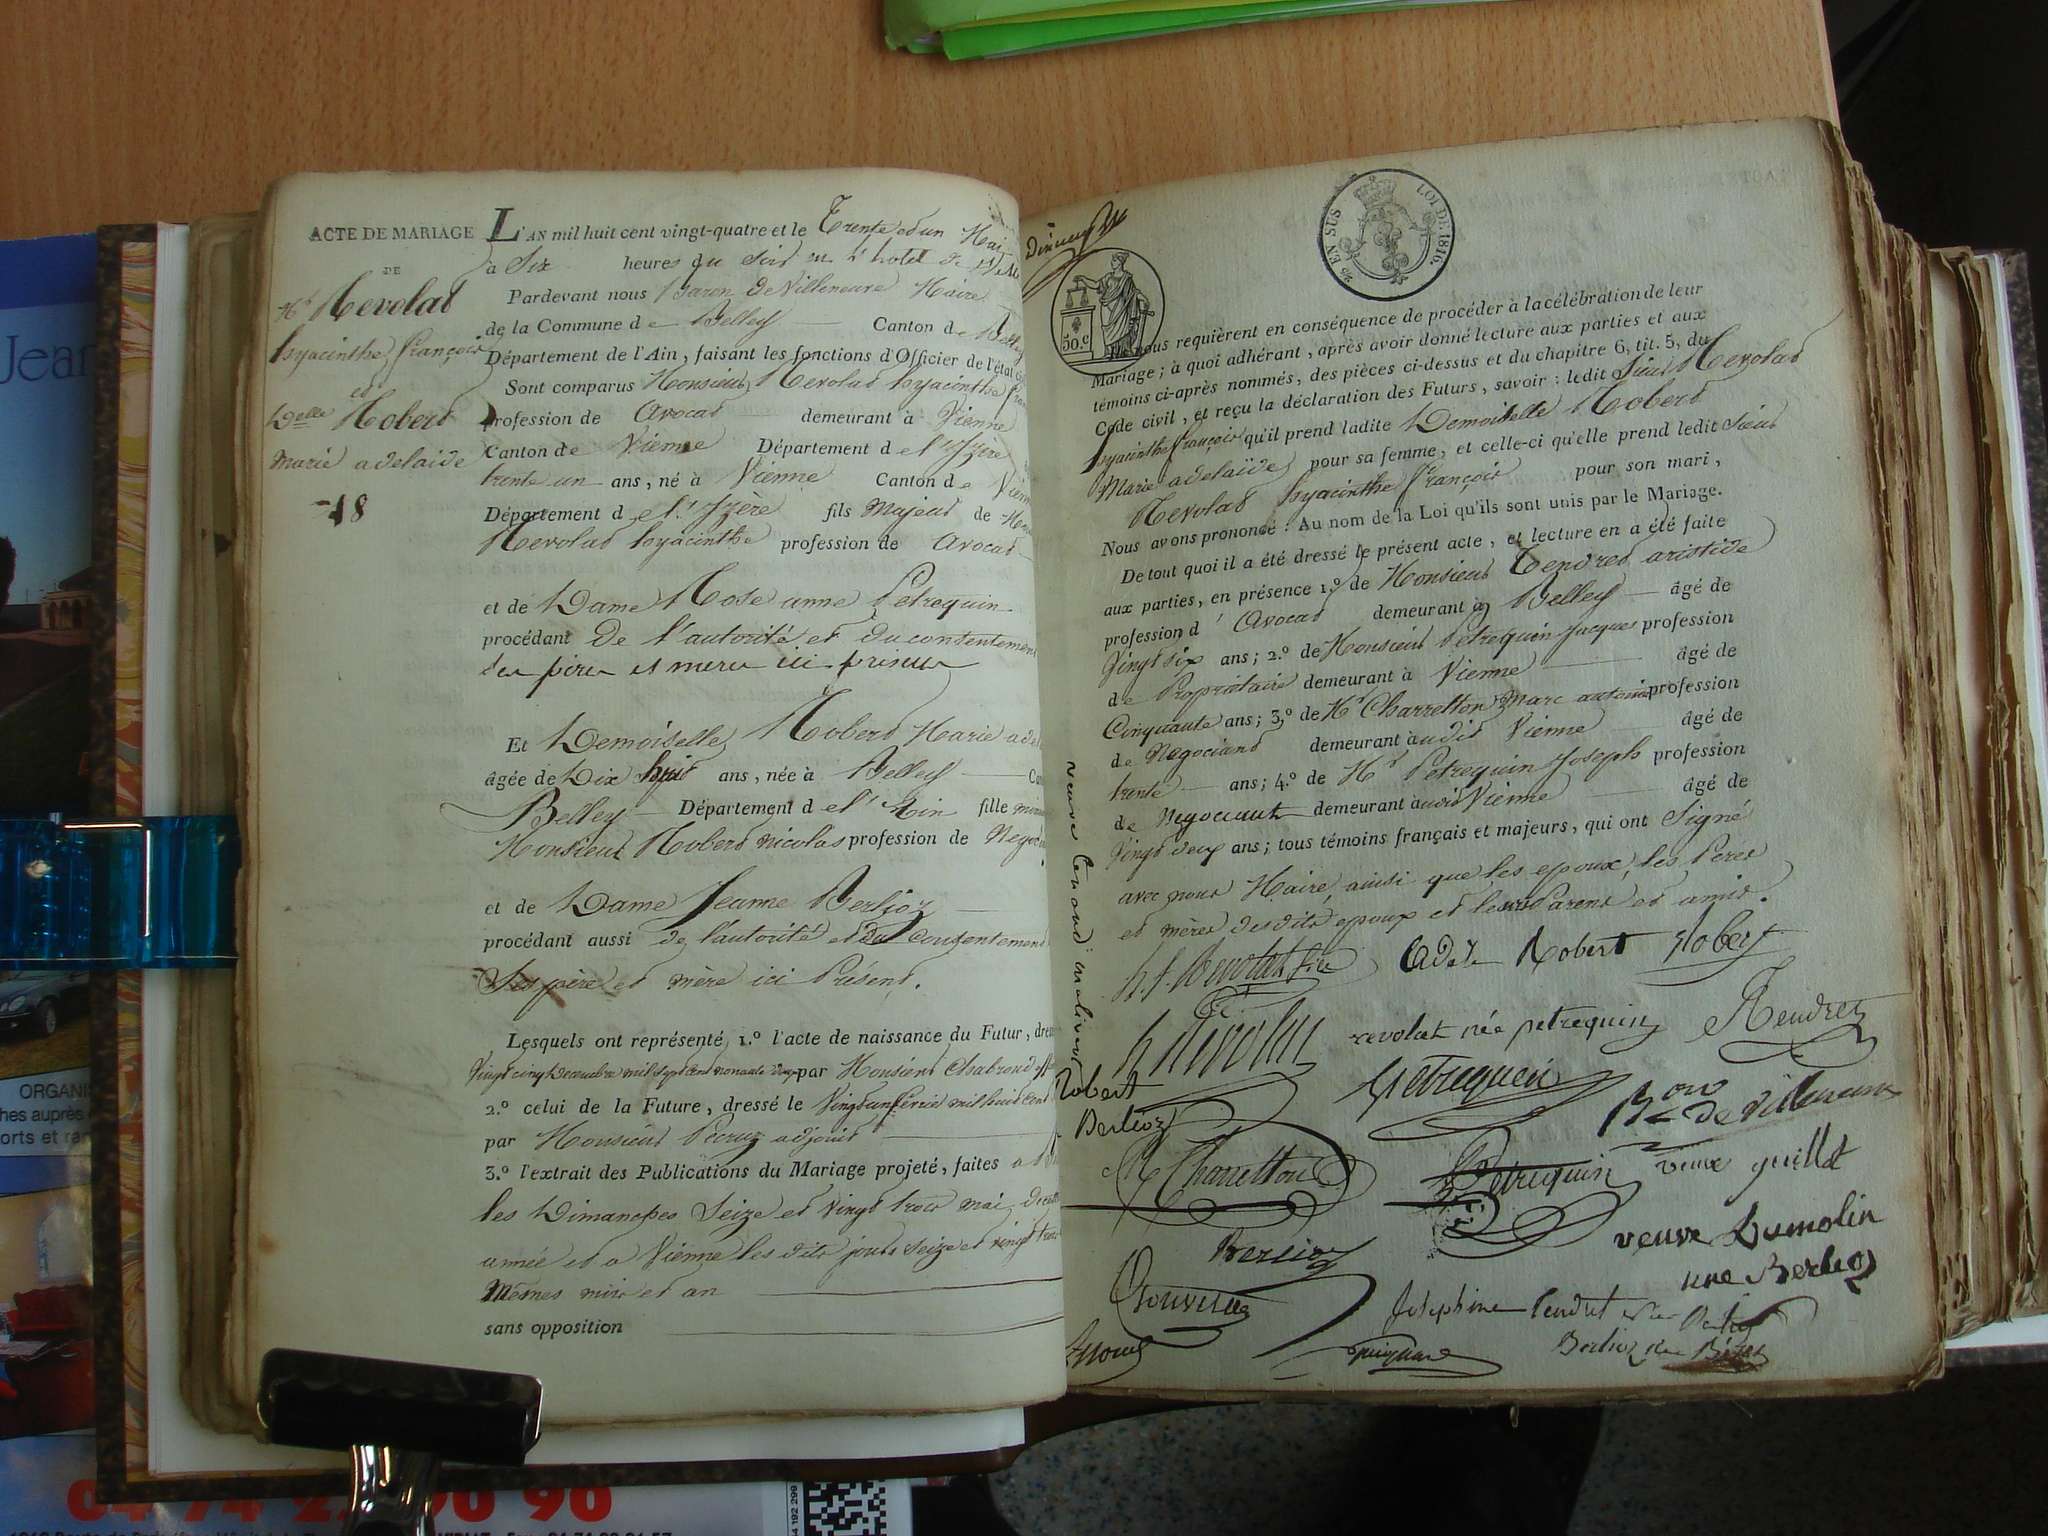 ACTE DE MARIAGE
DE
Mr Revolat
hyacinthe françois
et
Delle Robert
marie adelaide
18
L'AN mil huit cent vingt-quatre et le Trente et un Mai
à Six heures du soir en l'hotel de
Pardevant nous Baron de Villeneuve Maire
de la Commune de Belley Canton de Belley
Département de l'Ain, faisant les fonctions d'Officier de l'état
Sont comparus Monsieur Revolat hyacinthe
profession de avocat demeurant à Vienne
Canton de Vienne Département de l'Isère
trente un ans, né à Vienne Canton de
Département de l'Isère fils Majeur de
Revolat hyacinthe profession de avocat
et de Dame Rose anne Petrequin
procédant de l'autorité et du consentement
des pere et mere ici present
Et Demoiselle Robert Marie
âgée de Dix huit ans, née à Belley
Belley Département de l'Ain fille
Monsieur Robert nicolas profession de
et de Dame Jeanne Berlioz
procédant aussi de l'autorité et du consentement
Ses père et mère ici Présent.
Lesquels ont représenté, 1.º l'acte de naissance du Futur,
Vingt cinq Decembre mil sept cent nonante par Monsieur Chabroud
2.º celui de la Future, dressé le Vingt un mil huit cent
par Monsieur adjoint
3.º l'extrait des Publications du Mariage projeté, faites a
les Dimanches Seize et Vingt trois mai
année et a Vienne les dits jours seize et vingt trois
Mêmes mois et an
sans opposition
50.c
EN SUS
LOI DE 1816.
Ils nous requièrent en conséquence de procéder à la célébration de leur
Mariage; à quoi adhérant, après avoir donné lecture aux parties et aux
témoins ci-après nommés, des pièces ci-dessus et du chapitre 6, tit. 5, du
Code civil, et reçu la déclaration des Futurs, savoir: ledit Sieur Revolat
hyacinthe françois qu'il prend ladite Demoiselle Robert
Marie adelaïde pour sa femme, et celle-ci qu'elle prend ledit Sieur
Revolat hyacinthe françois pour son mari,
Nous avons prononcé: Au nom de la Loi qu'ils sont unis par le Mariage.
De tout quoi il a été dressé le présent acte, et lecture en a été faite
aux parties, en présence 1.º de Monsieur Tendret aristide
profession d'Avocat demeurant à Belley âgé de
Vingt six ans; 2.º de Monsieur Petrequin Jacques profession
de Propriétaire demeurant à Vienne âgé de
Cinquante ans; 3.º de Mr Charretton Marc antoine profession
de Negociant demeurant audit Vienne âgé de
trente ans; 4.º de Mr Petrequin Joseph profession
de Negociant demeurant audit Vienne âgé de
Vingt deux ans; tous témoins français et majeurs, qui ont Signé
avec nous Maire, ainsi que les epoux, les Peres
et mères desdits epoux et leurs Parens et amis.
h. f. Revolat fils
Adele Robert
Robert
h Revolat
revolat née petrequin
Tendret
Robert
Berlioz
Petrequin
Bon de Villeneuve
Charretton
Petrequin
veuve guillot
veuve Dumolin
née Berlioz
Berlioz
Josephine Tendret née
Berlioz née
veuve
Jean
ORGANIS
hes auprès
orts et ran